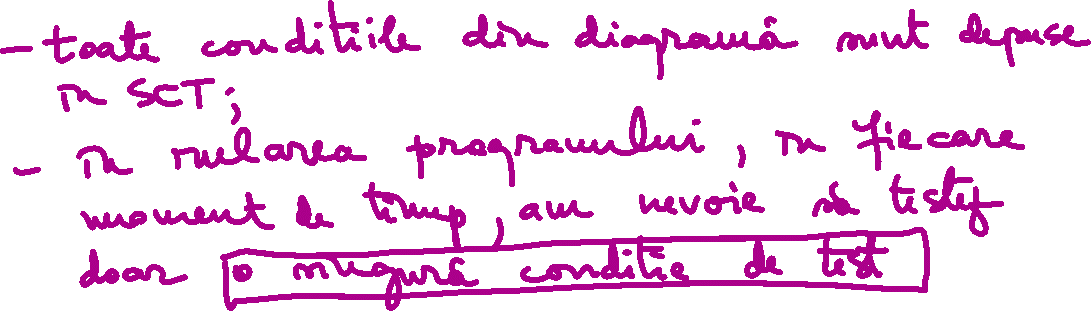 - toate conditiile din diagramă sunt depuse
în SCT;
- în rularea programului, în fiecare
moment de timp, am nevoie să testez
doar o singură conditie de test